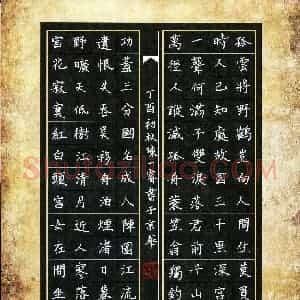 孤雲將野鶴豈向人間住莫買
時人已知處故國三千里深宮
一聲何滿子雙淚落君前千山
萬徑人蹤滅孤舟蓑笠翁獨釣
丁酉初秋陳書于京華
功蓋三分國名成八陣圖江流
遺恨失吞吳移舟泊煙渚日暮
野曠天低樹江清月近人寥落
宮花寂寞紅白頭宮女在閒坐